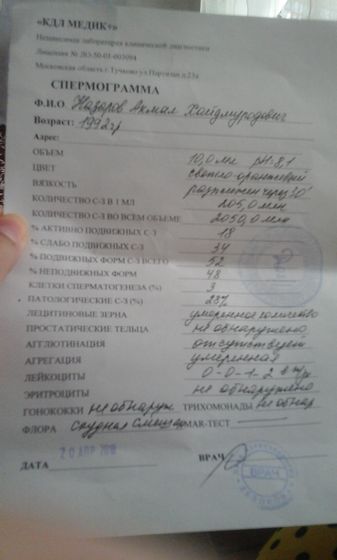 «КДЛ МЕДИК+»
Независимая лаборатория клинической диагностики
Лицензия № ЛО-50-01-003094
Московская область г.Тучково ул.Партизан д.23а
СПЕРМОГРАММА
Ф.И.О. Назаров Акмал Хайдмуродович
Возраст: 1992гр
Адрес:
ОБЪЕМ 10,0 мл pH-8,1
ЦВЕТ светло-оранжевый
ВЯЗКОСТЬ разжижен через 30'
КОЛИЧЕСТВО С-З В 1 МЛ 205,0 млн
КОЛИЧЕСТВО С-З ВО ВСЁМ ОБЪЕМЕ 2050,0 млн
% АКТИВНО ПОДВИЖНЫХ С-З 18
% СЛАБО ПОДВИЖНЫХ С-З 34
% ПОДВИЖНЫХ ФОРМ С-З ВСЕГО 52
% НЕПОДВИЖНЫХ ФОРМ 48
КЛЕТКИ СПЕРМАТОГЕНЕЗА (%) 3
ПАТОЛОГИЧЕСКИЕ С-З (%) 28%
ЛЕЦИТИНОВЫЕ ЗЕРНА умеренное количество
ПРОСТАТИЧЕСКИЕ ТЕЛЬЦА не обнаружено
АГГЛЮТИНАЦИЯ отсутствует
АГРЕГАЦИЯ умеренная
ЛЕЙКОЦИТЫ 0-0-1-2 в п/зр
ЭРИТРОЦИТЫ не обнаружено
ГОНОКОККИ не обнаруж ТРИХОМОНАДЫ не обнар
ФЛОРА Скудная MAR-ТЕСТ
ДАТА 20 АПР ВРАЧ
ВРАЧ